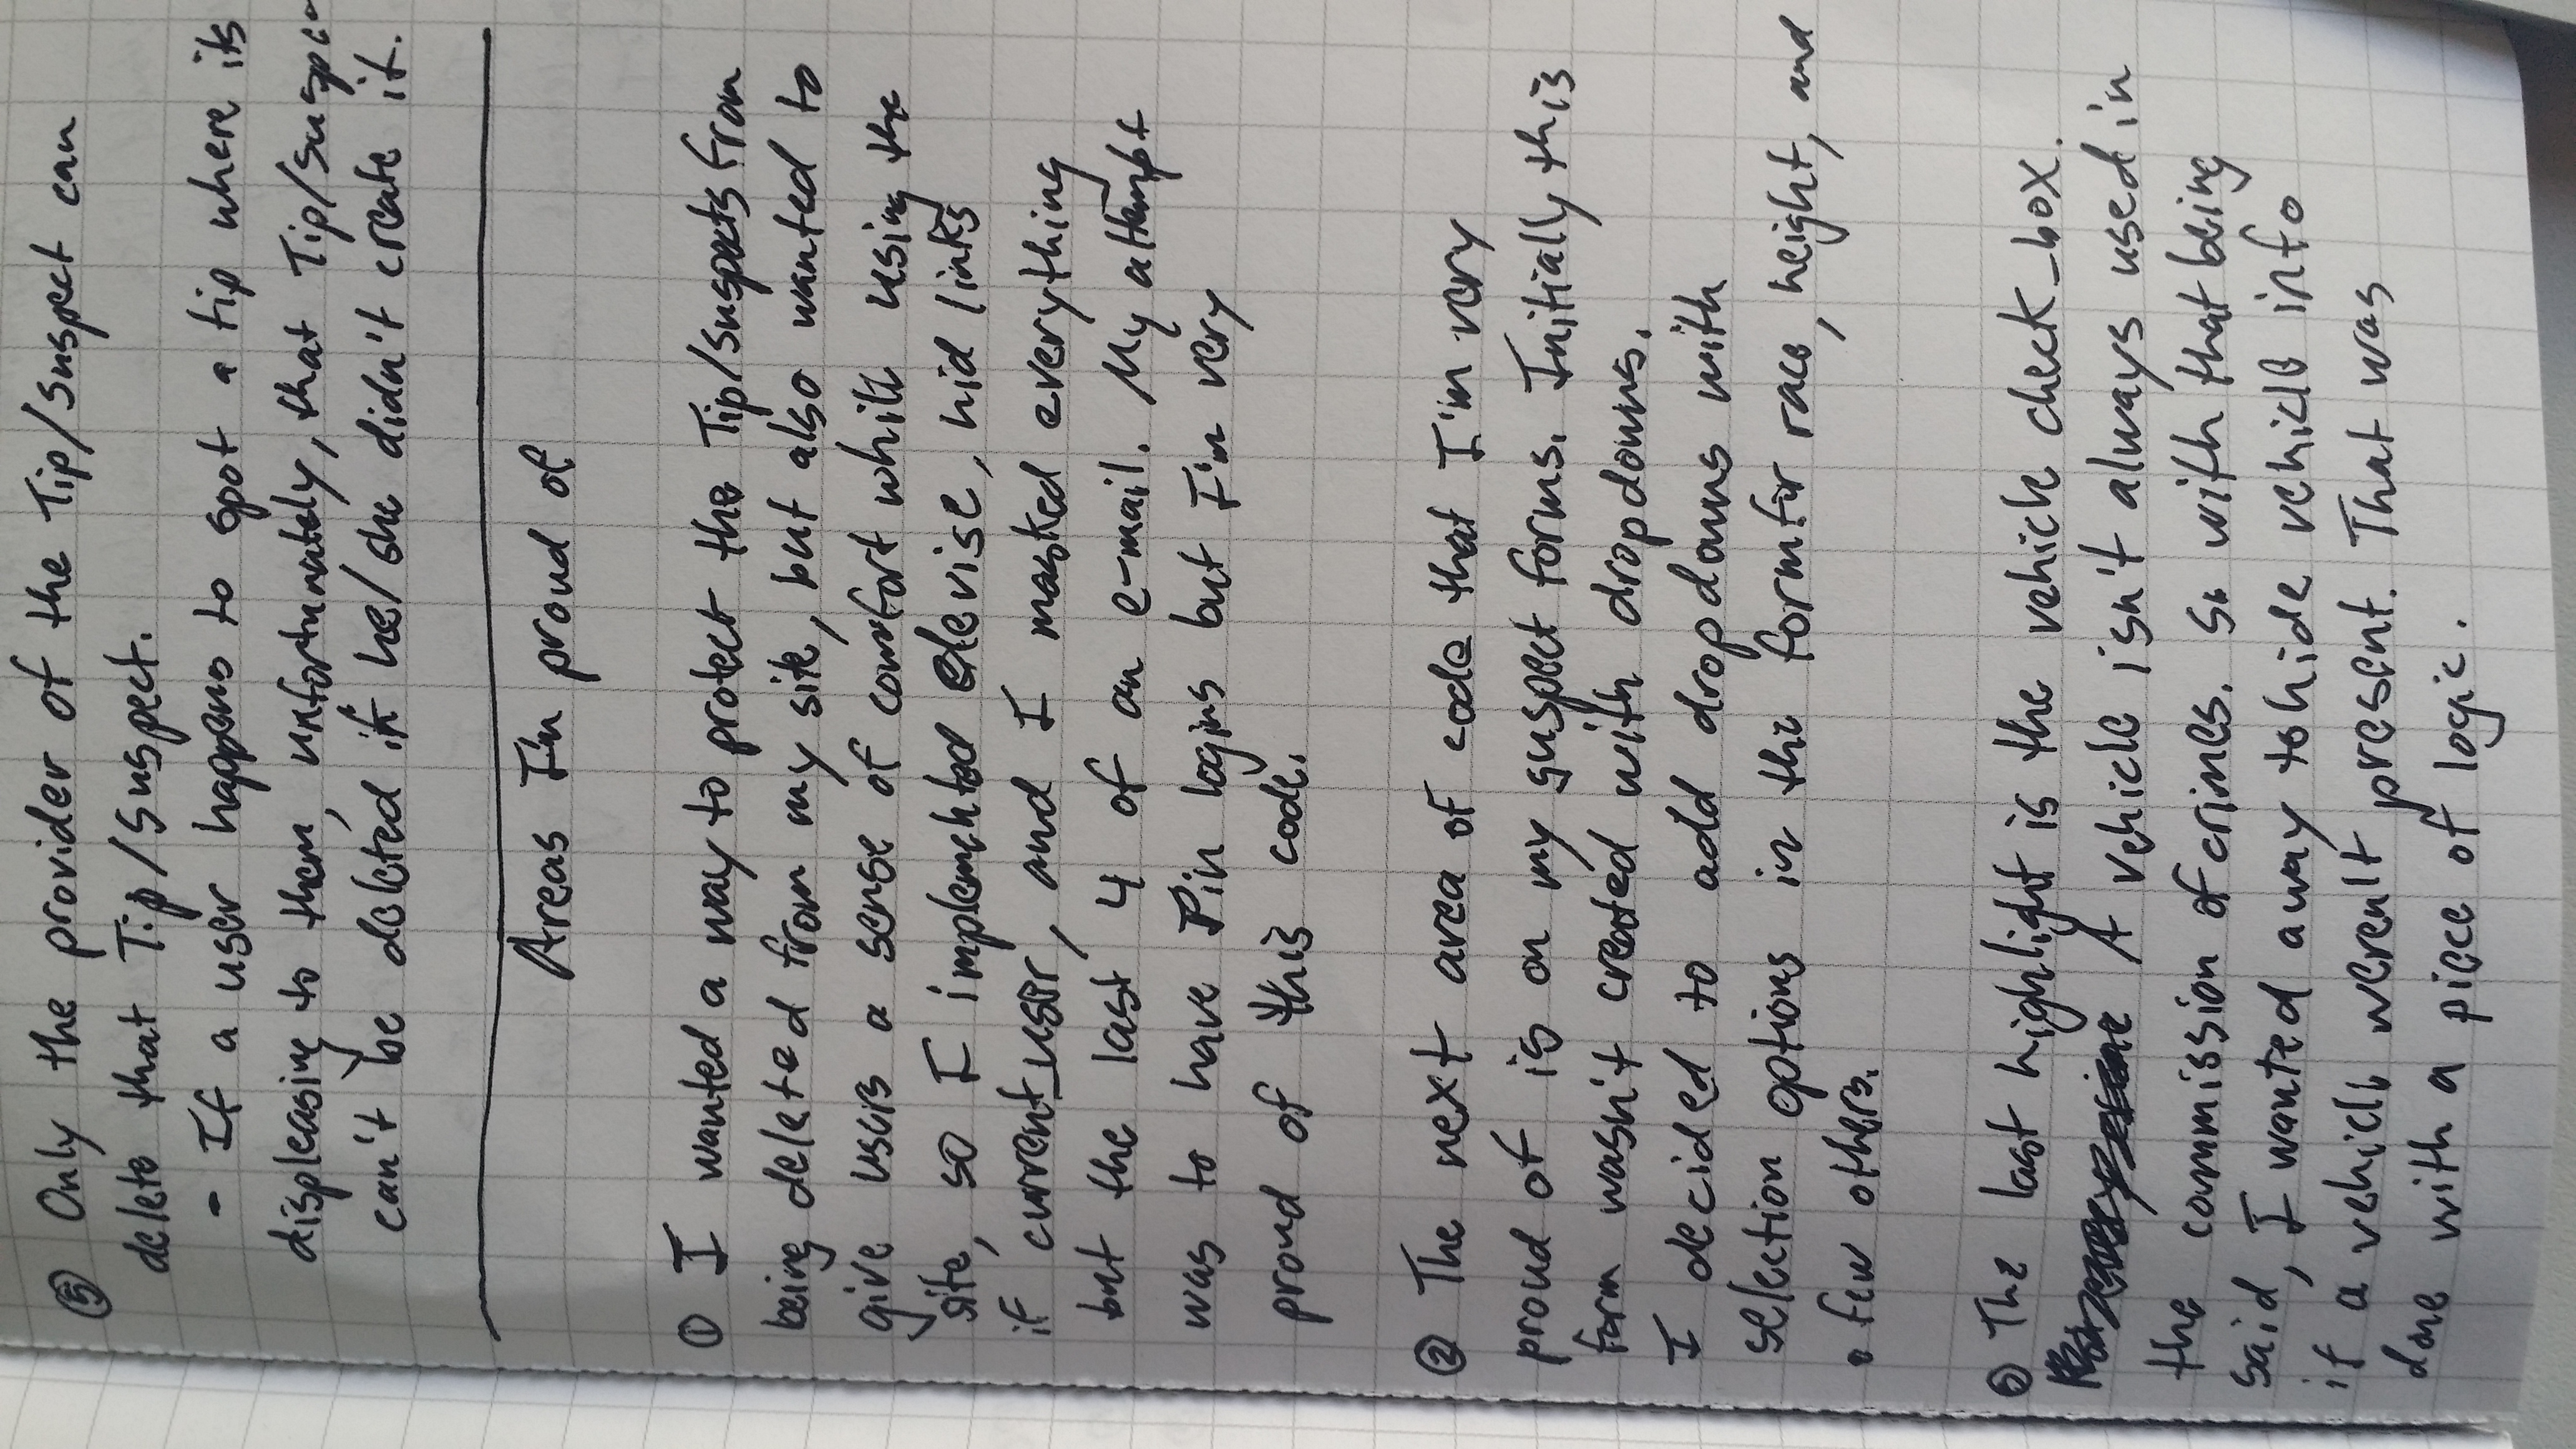 ⑤ Only the provider of the Tip/Suspect can
delete that Tip/Suspect.
- If a user happens to spot a tip where its
displeasing to them, unfortunately, that Tip/Suspec
can't be deleted if he/she didn't create it.
Areas I'm proud of
① I wanted a way to protect the Tip/Suspects from
being deleted from my site, but also wanted to
give users a sense of comfort while using the
site, so I implemented devise, hid links
if current_user, and I masked everything
but the last 4 of an e-mail. My attempt
was to have Pin logins but I'm very
proud of this code.
② The next area of code that I'm very
proud of is on my suspect forms. Initially this
form wasn't created with dropdowns.
I decided to add dropdowns with
selection options in the form for race, height, and
a few others.
③ The last highlight is the vehicle check_box.
A vehicle isn't always used in
the commission of crimes. So with that being
said, I wanted a way to hide vehicle info
if a vehicle weren't present. That was
done with a piece of logic.